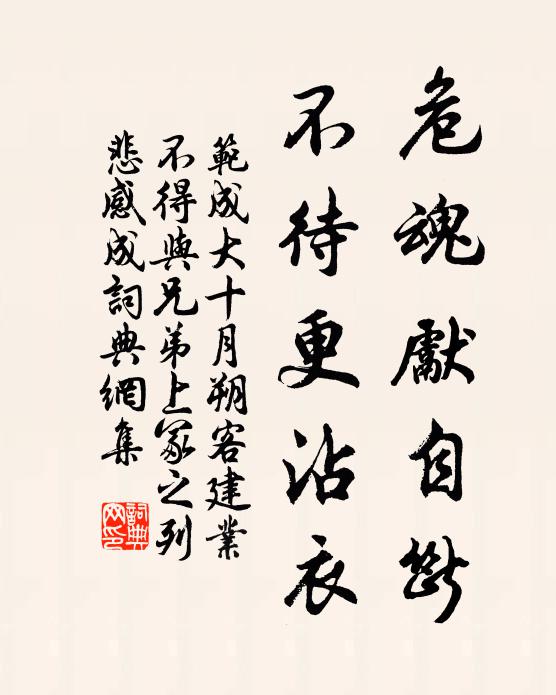 危魂獻自斷
不待更沾衣
範成大十月朔客建業
不得與兄弟上冢之列
悲感成詞典網集
詞典
网印